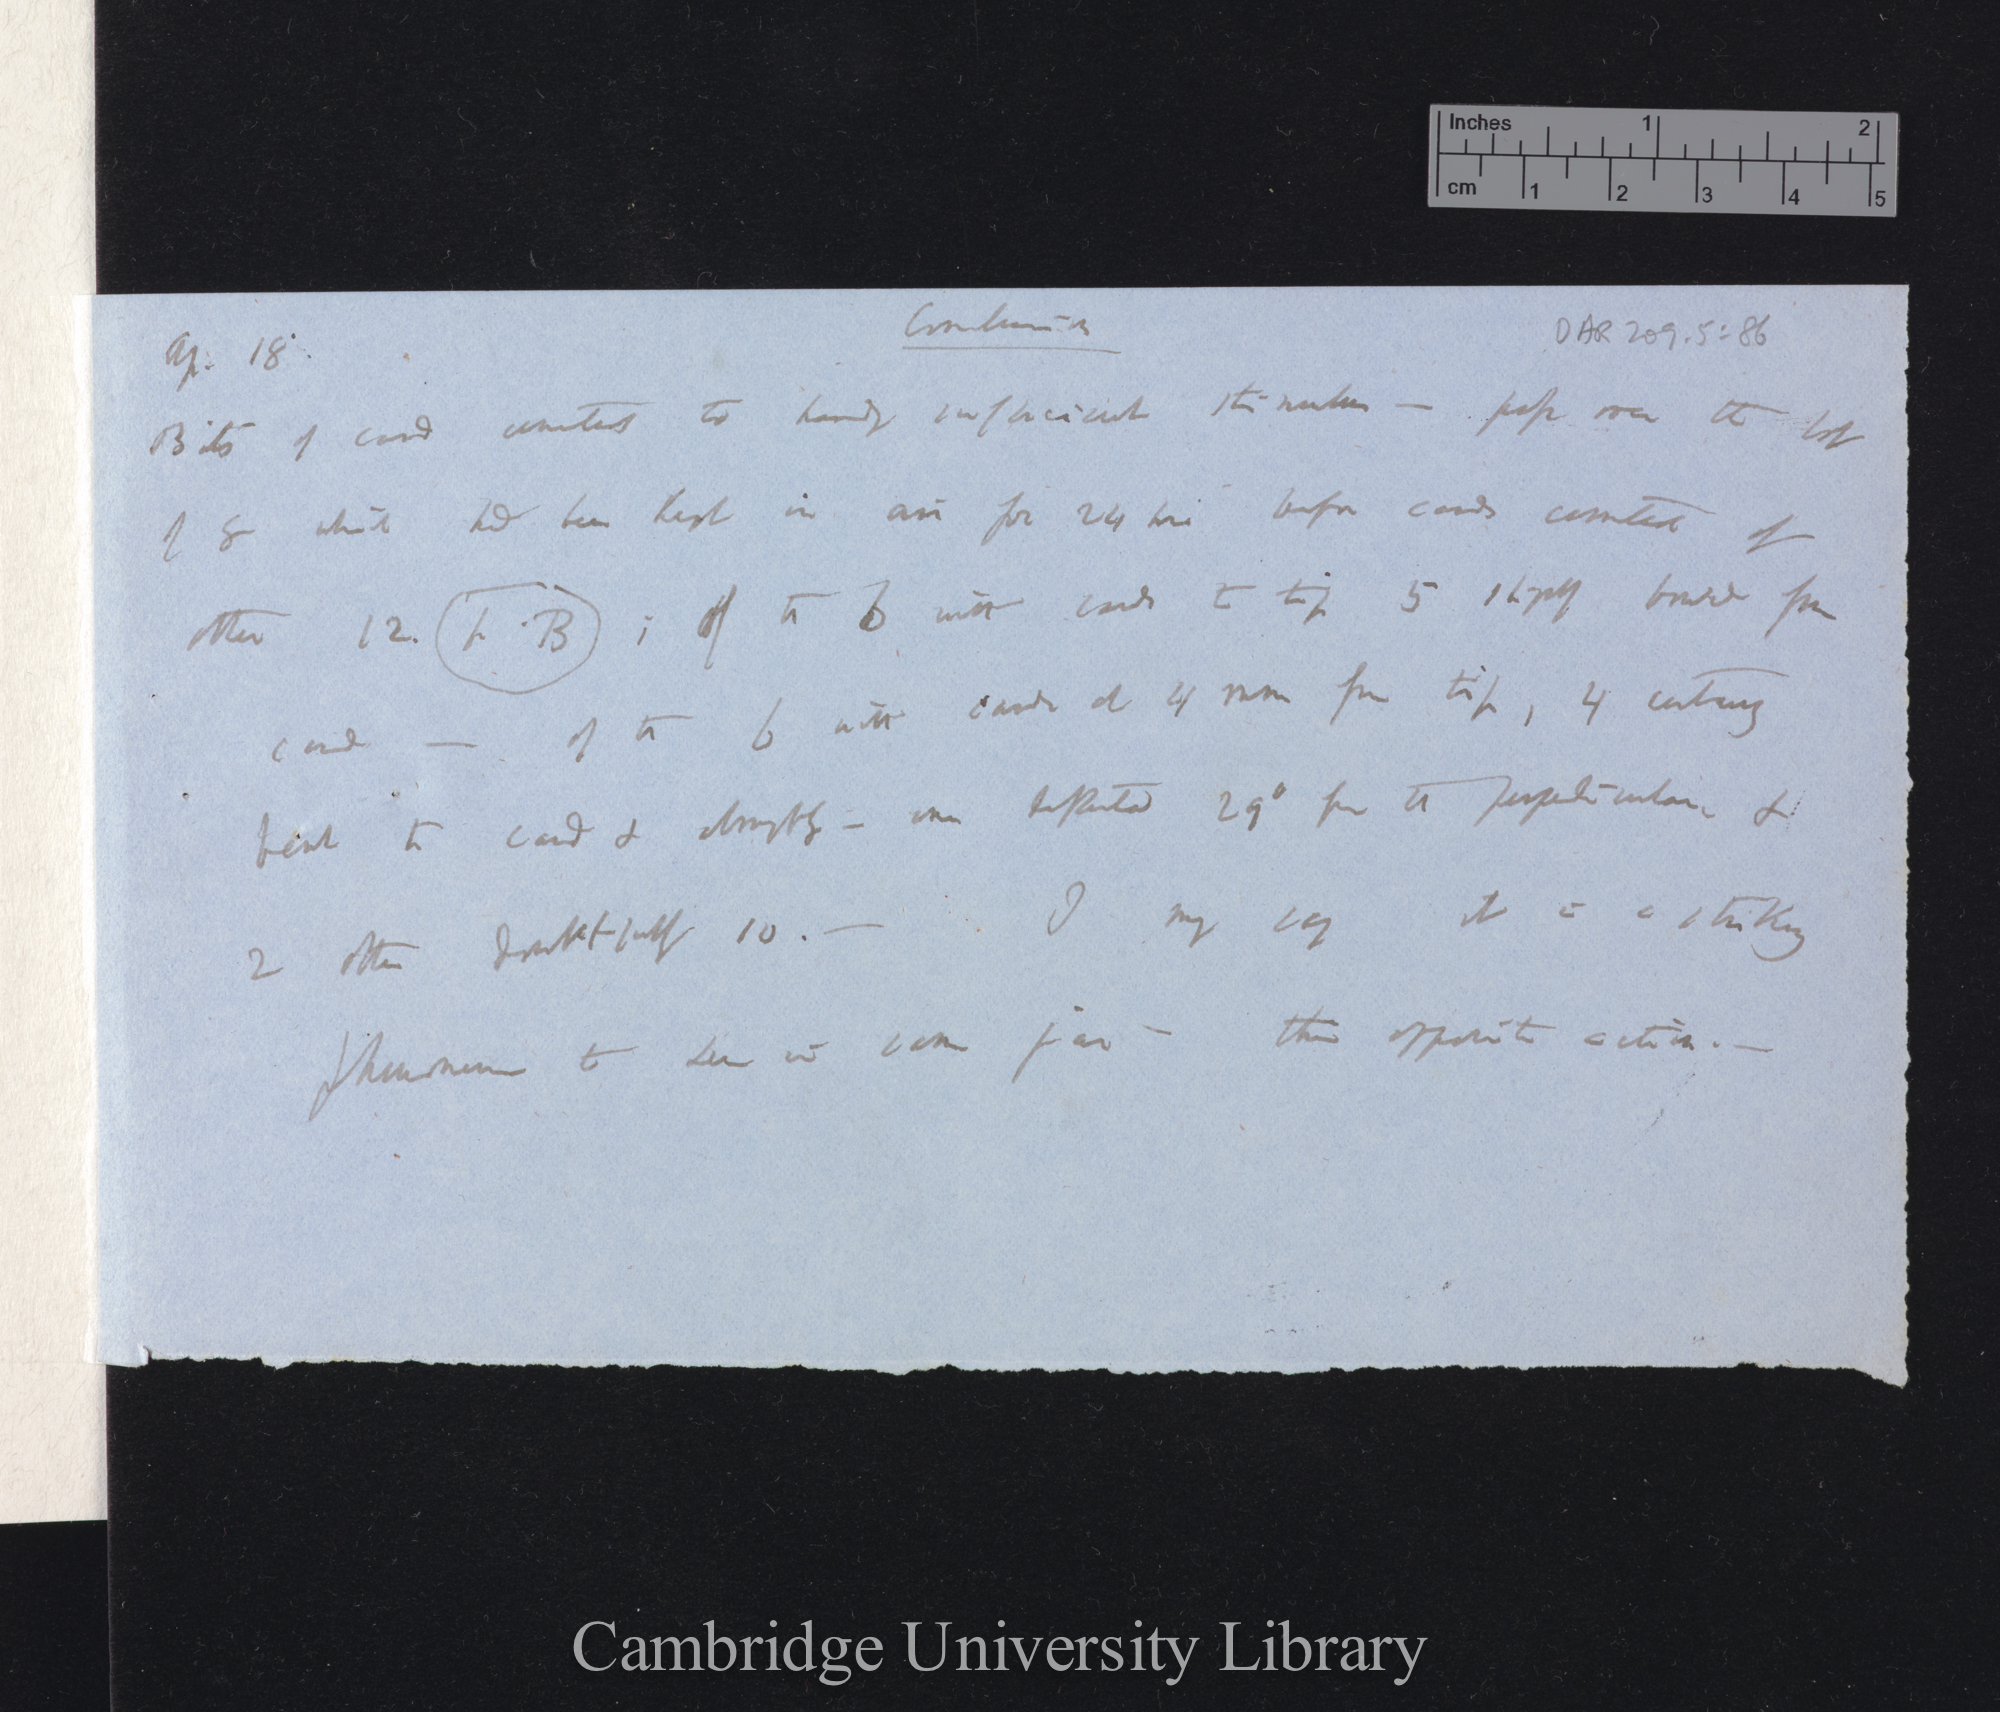 Inches 1 2
cm 1 2 3 4 5
Conclusion
DAR 209.5:86
Ap. 18.
Bits of card cemented to hardly sufficient stimulus — perhaps over the
of 8 which had been kept in air for 24 hrs before cards cemented of
other 12. B ; of the 6 with cards to tip 5 bowed from
card — of the 6 with cards at 4 mm from tip, 4 certainly
bent to card & abruptly — one deflected 29° from the perpendicular &
2 other doubtfully 10. — I may say it is a striking
phenomenon to see in same jar — this opposite action. —
Cambridge University Library